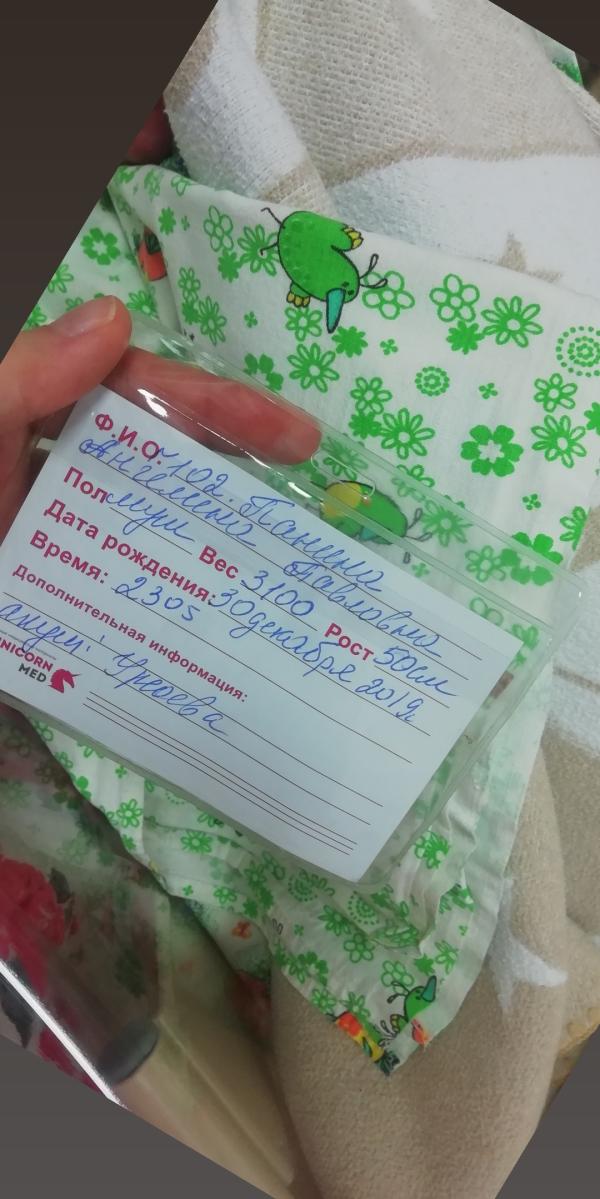 Ф.И.О. 102. Панина
Ангелина Павловна
Пол муж Вес 3100 Рост 50см
Дата рождения: 30 декабря 2019г.
Время: 2305
Дополнительная информация:
акуш:
UNICORN
MED